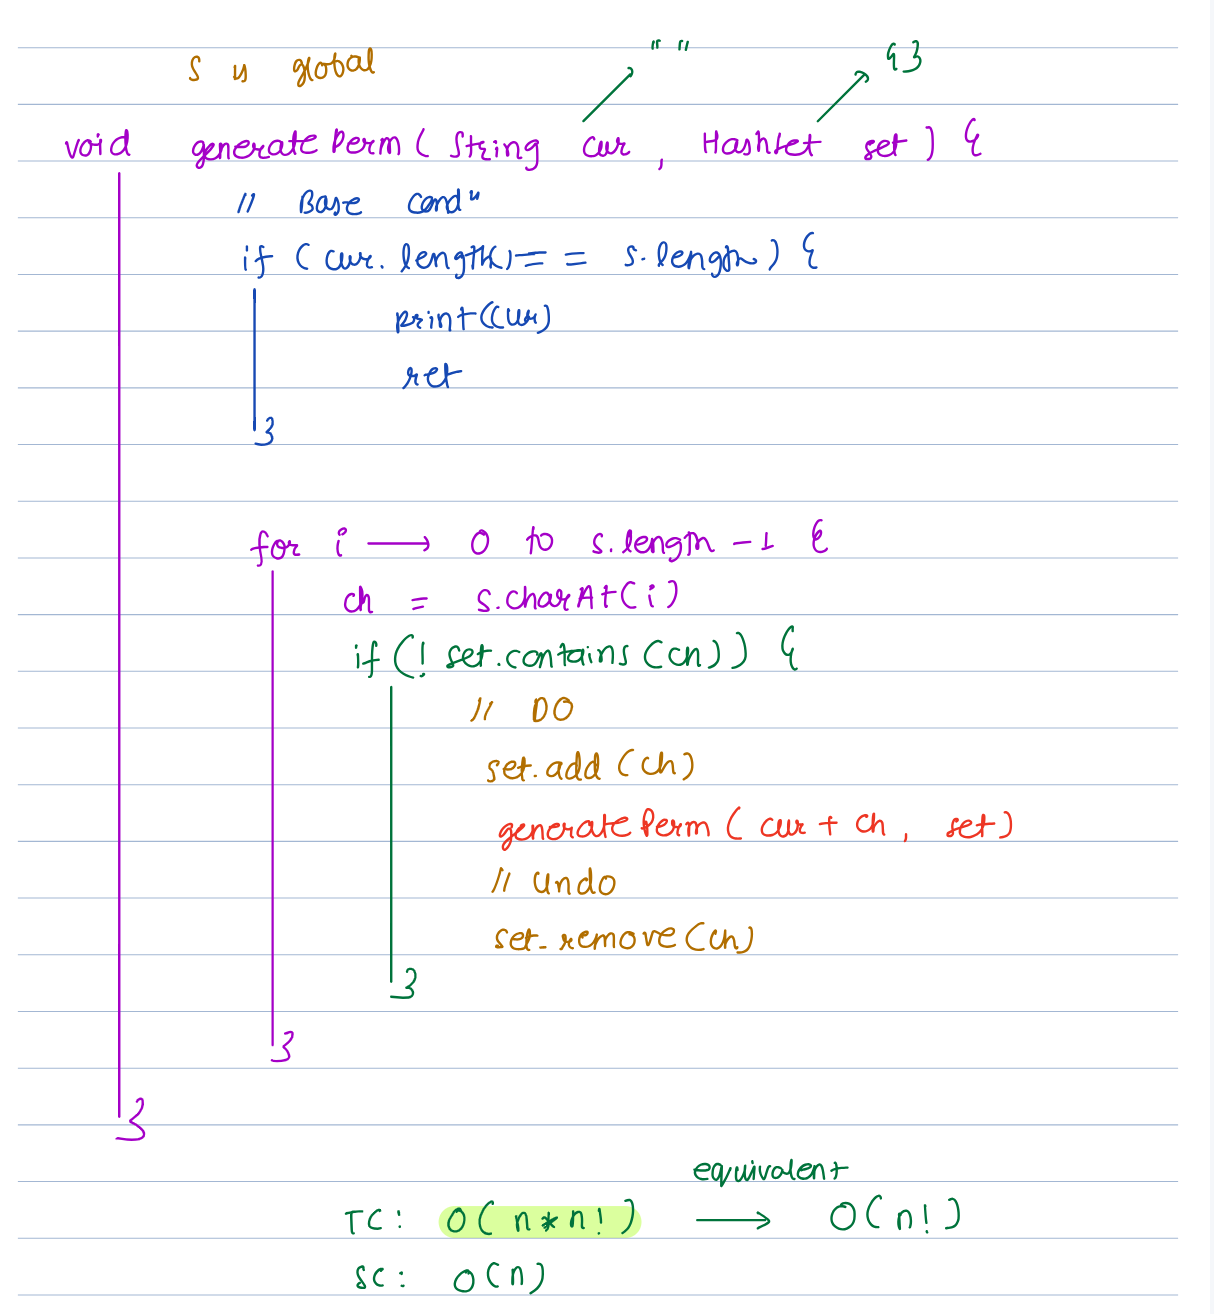 " " {}
S is global
void generatePerm( String cur , HashSet set ) {
// Base condn
if ( cur. length() == s.length ) {
print(cur)
ret
}
for i → 0 to s.length - 1 {
ch = s.charAt(i)
if (! set.contains (ch) ) {
// DO
set.add (ch)
generatePerm ( cur + ch , set )
// Undo
set.remove (ch)
}
}
}
equivalent
TC : O( n * n! ) → O( n! )
SC : O(n)